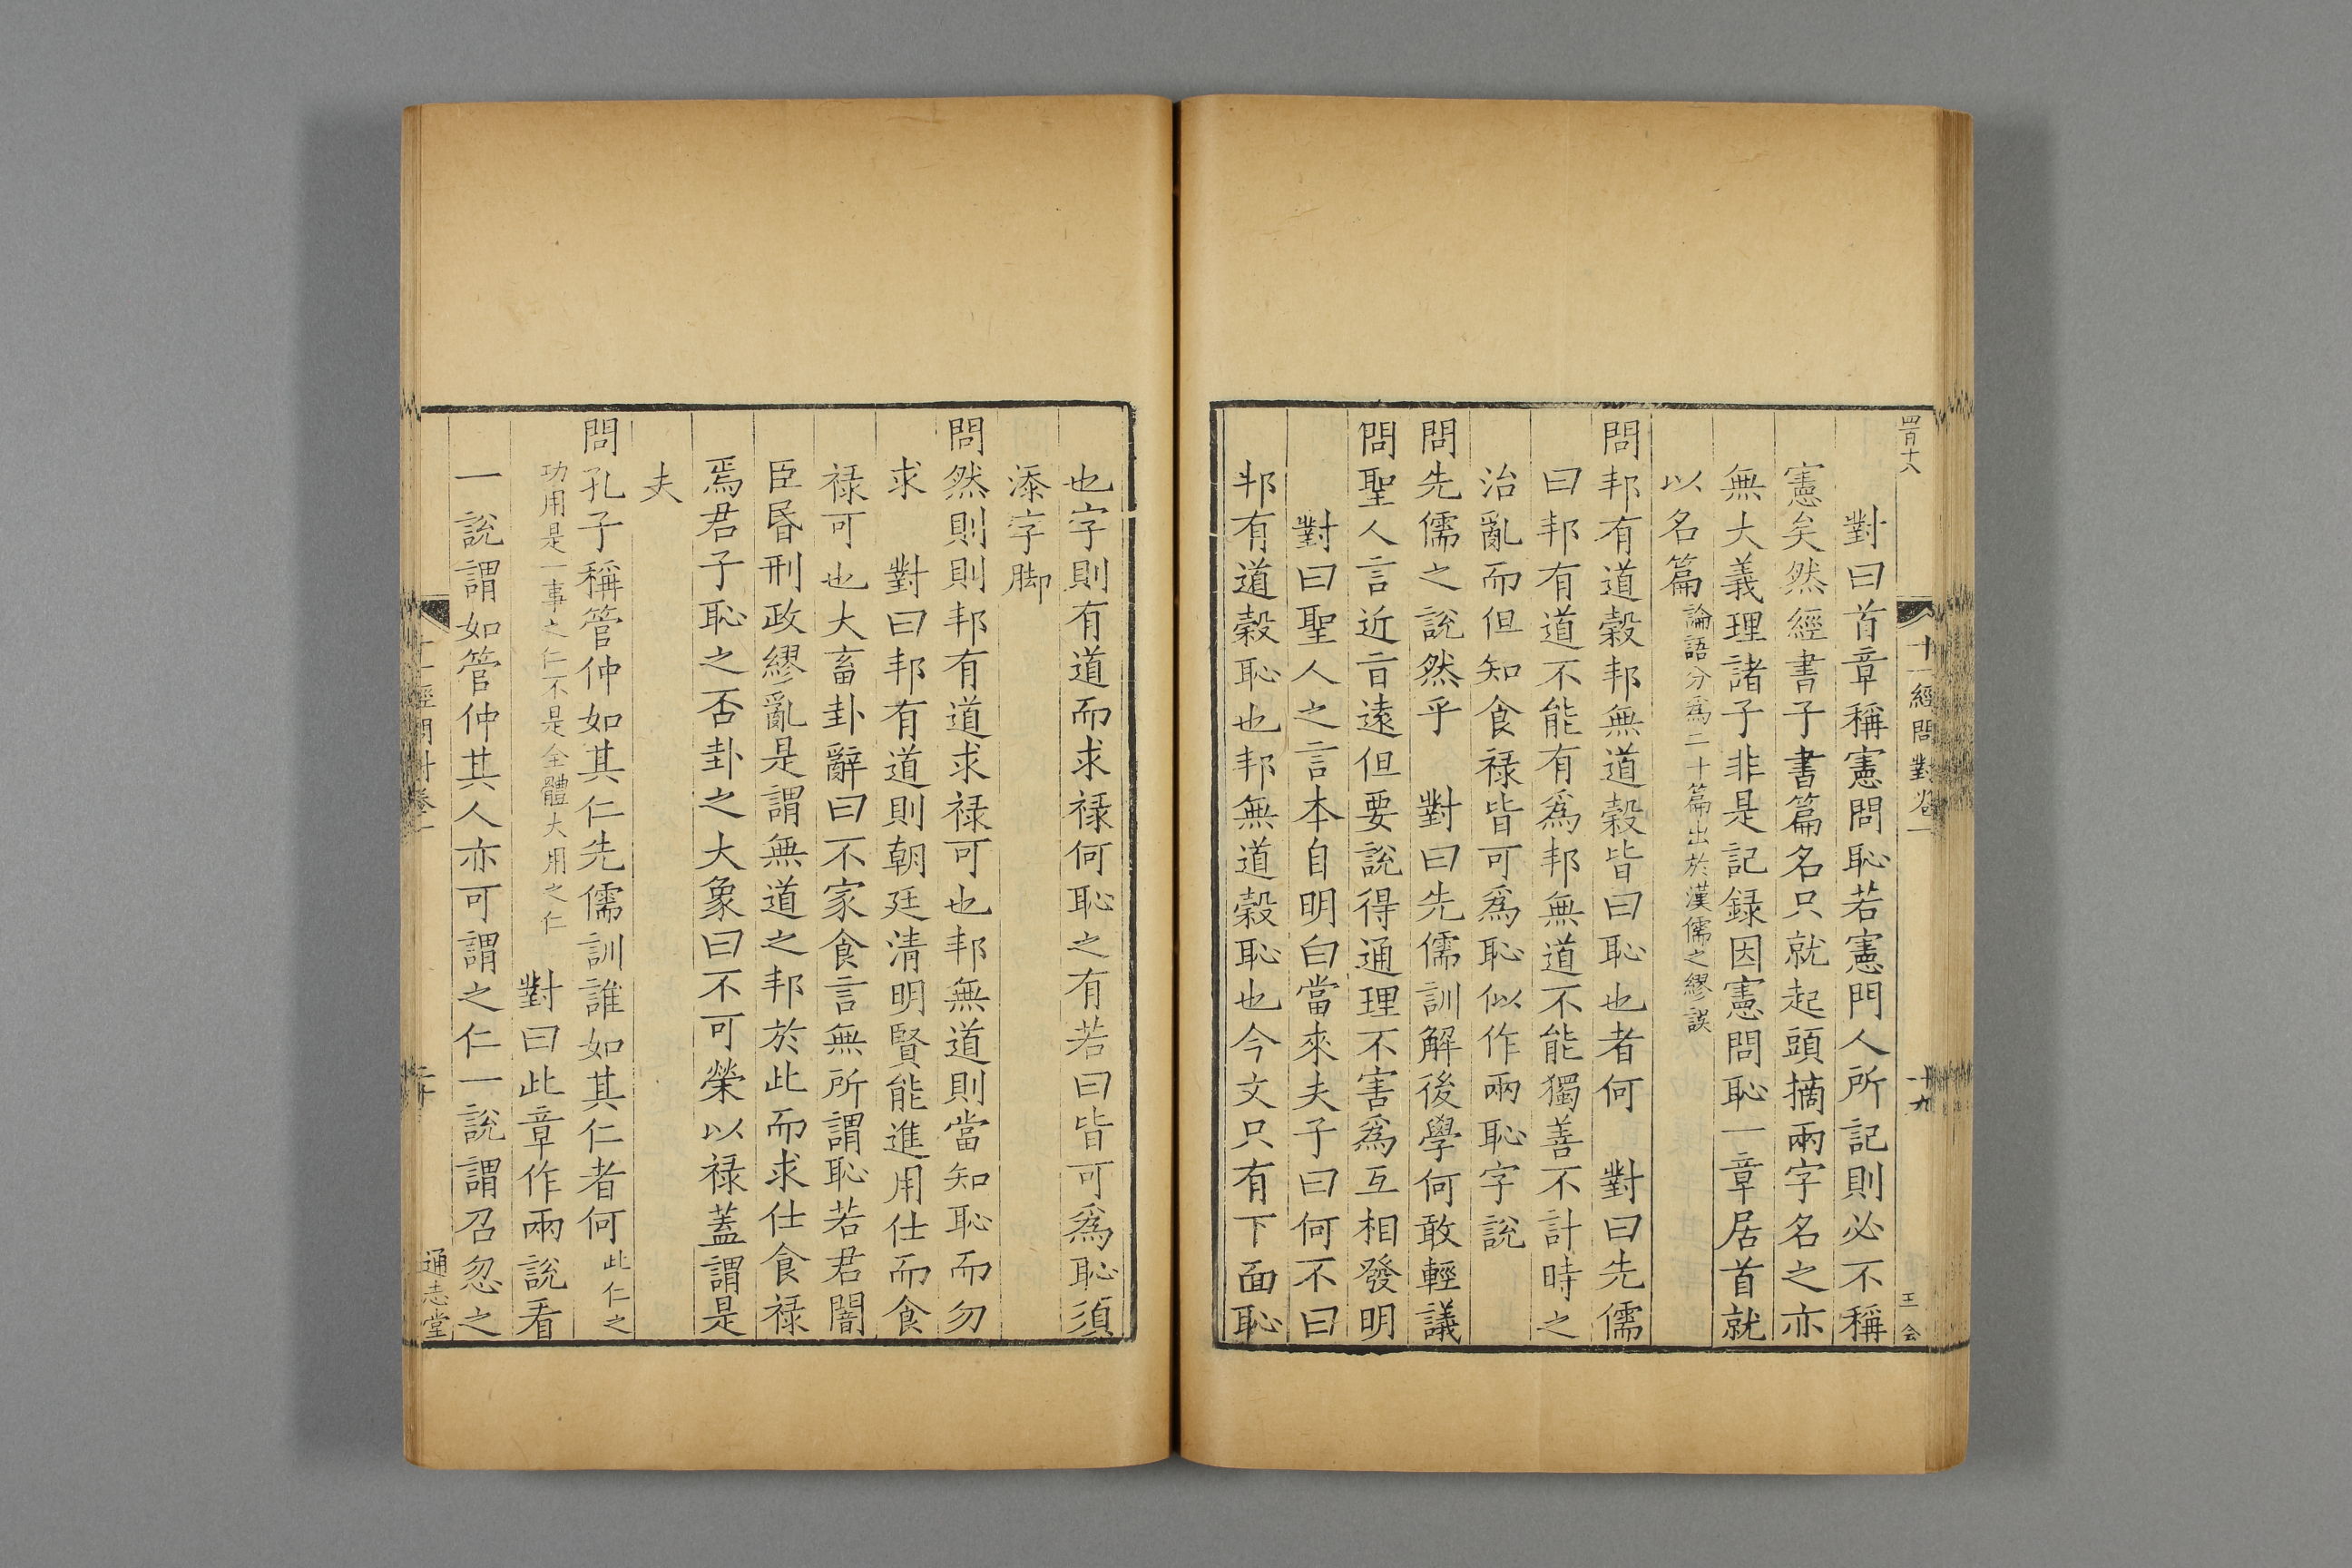 四百十八
十一經問對卷一
十九
王会
對曰首章稱憲問恥若憲門人所記則必不稱
憲矣然經書子書篇名只就起頭摘兩字名之亦
無大義理諸子非是記録因憲問恥一章居首就
以名篇論語分爲二十篇出於漢儒之繆誤
問邦有道穀邦無道穀皆曰恥也者何　對曰先儒
曰邦有道不能有爲邦無道不能獨善不計時之
治亂而但知食祿皆可爲恥似作兩恥字說
問先儒之說然乎　對曰先儒訓解後學何敢輕議
問聖人言近言遠但要說得通理不害爲互相發明
對曰聖人之言本自明白當來夫子曰何不曰
邦有道穀恥也邦無道穀恥也今文只有下面恥
也字則有道而求祿何恥之有若曰皆可爲恥須
添字脚
問然則則邦有道求祿可也邦無道則當知恥而勿
求　對曰邦有道則朝廷清明賢能進用仕而食
祿可也大畜卦辭曰不家食言無所謂恥若君闇
臣昬刑政繆亂是謂無道之邦於此而求仕食祿
焉君子恥之否卦之大象曰不可榮以祿蓋謂是
夫
問孔子稱管仲如其仁先儒訓誰如其仁者何此仁之
功用是一事之仁不是全體大用之仁　對曰此章作兩說看
一說謂如管仲其人亦可謂之仁一說謂召忽之
十一經問對卷一
二十
通志堂